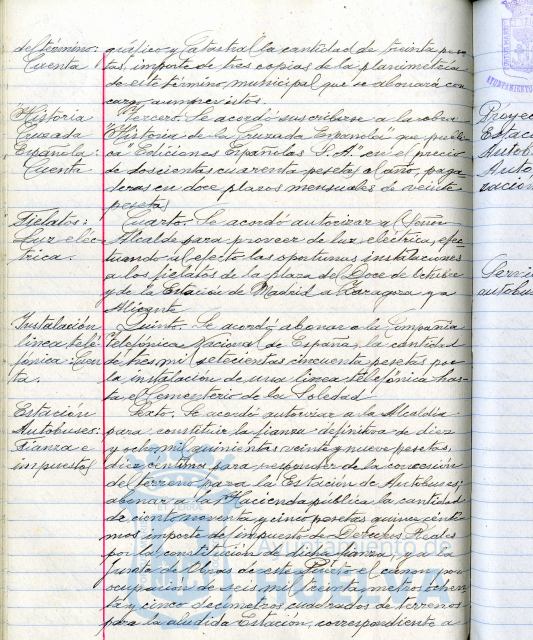 del término: gráfico y Catastral la cantidad de treinta pese-
Cuenta tas, importe de tres copias de la planimetría
de este término municipal que se abonará con
cargo a imprevistos.
Historia Tercero. Se acordó suscribirse a la obra
Cruzada "Historia de la Cruzada Española" que publi-
Española: ca "Ediciones Españolas S.A." en el precio
Cuenta de doscientas cuarenta pesetas al año, paga-
deras en doce plazos mensuales de veinte
pesetas
Fielatos: Cuarto. Se acordó autorizar al Señor
Luz eléc- Alcalde para proveer de luz eléctrica, efec-
trica. tuando al efecto las oportunas instalaciones
a los fielatos de la plaza del Doce de Octubre
y de la Estación de Madrid a Zaragoza y a
Alicante
Instalación Quinto. Se acordó abonar a la Compañía
línea tele- Telefónica Nacional de España, la cantidad
fónica: Cuen- de tres mil setecientas cincuenta pesetas por
ta. la instalación de una línea telefónica has-
ta el Cementerio de la Soledad
Estación Sexto. Se acordó autorizar a la Alcaldía
Autobuses: para constituir la fianza definitiva de diez
Fianza e y ocho mil quinientas veinte y nueve pesetas,
impuestos diez céntimos para responder de la concesión
del terreno para la Estación de Autobuses;
abonar a la Hacienda pública la cantidad
de ciento noventa y cinco pesetas quince cénti-
mos importe de impuesto de Derechos Reales
por la constitución de dicha fianza y a la
Junta de Obras de este Puerto el canon por
ocupación de seis mil treinta metros ochen-
ta y cinco decímetros cuadrados de terrenos
para la aludida Estación, correspondiente a
Proyec
Estac
Autob
Auto
Servi
autobus
Ayuntamiento de
HUELVA